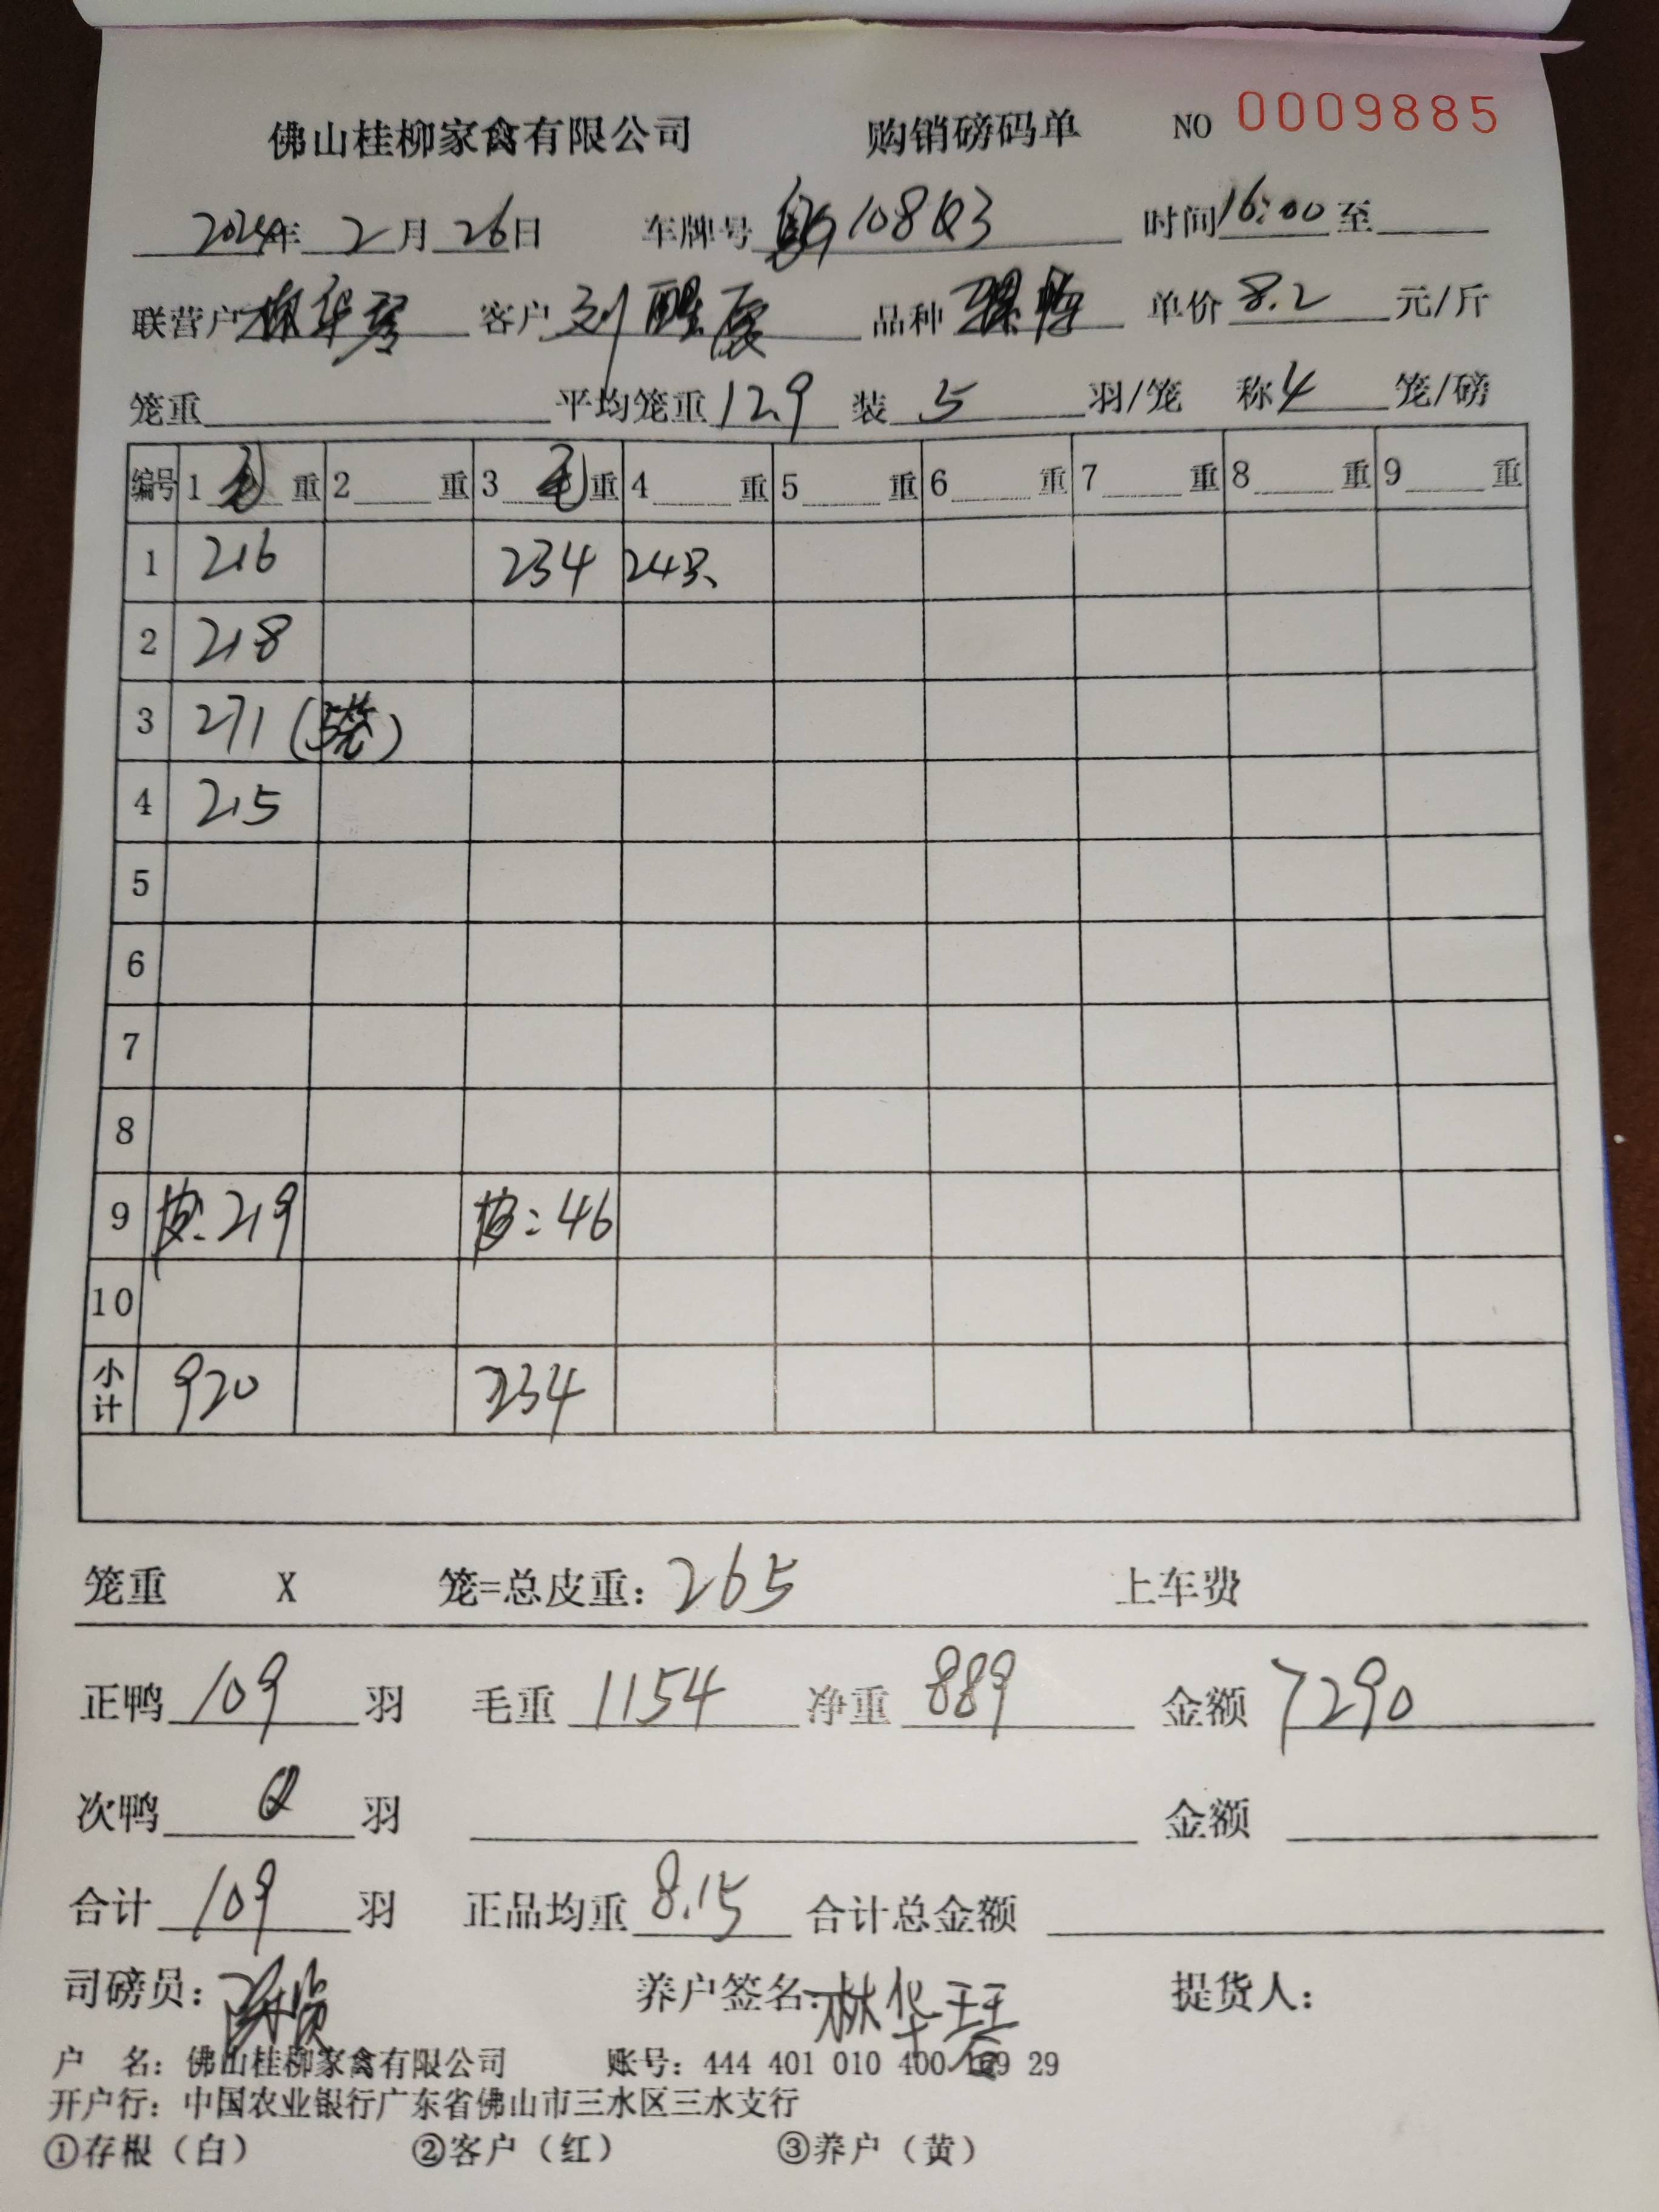 佛山桂柳家禽有限公司 购销磅码单 NO 0009885
2024年 2月 26日 车牌号 108Q3 时间 16:00 至
联营户 林华琴 客户 刘醒 品种 单价 8.2 元/斤
笼重 平均笼重 12.9 装 5 羽/笼 称 4 笼/磅
编号 1 毛 重 2 重 3 毛 重 4 重 5 重 6 重 7 重 8 重 9 重
1 216 234 24只
2 218
3 271 (5笼)
4 215
5
6
7
8
9 皮:219 皮:46
10
小计 920 234
笼重 X 笼=总皮重: 265 上车费
正鸭 109 羽 毛重 1154 净重 889 金额 7290
次鸭 0 羽 金额
合计 109 羽 正品均重 8.15 合计总金额
司磅员: 养户签名: 林华琴 提货人:
户 名: 佛山桂柳家禽有限公司 账号: 444 401 010 400 29
开户行: 中国农业银行广东省佛山市三水区三水支行
①存根（白） ②客户（红） ③养户（黄）